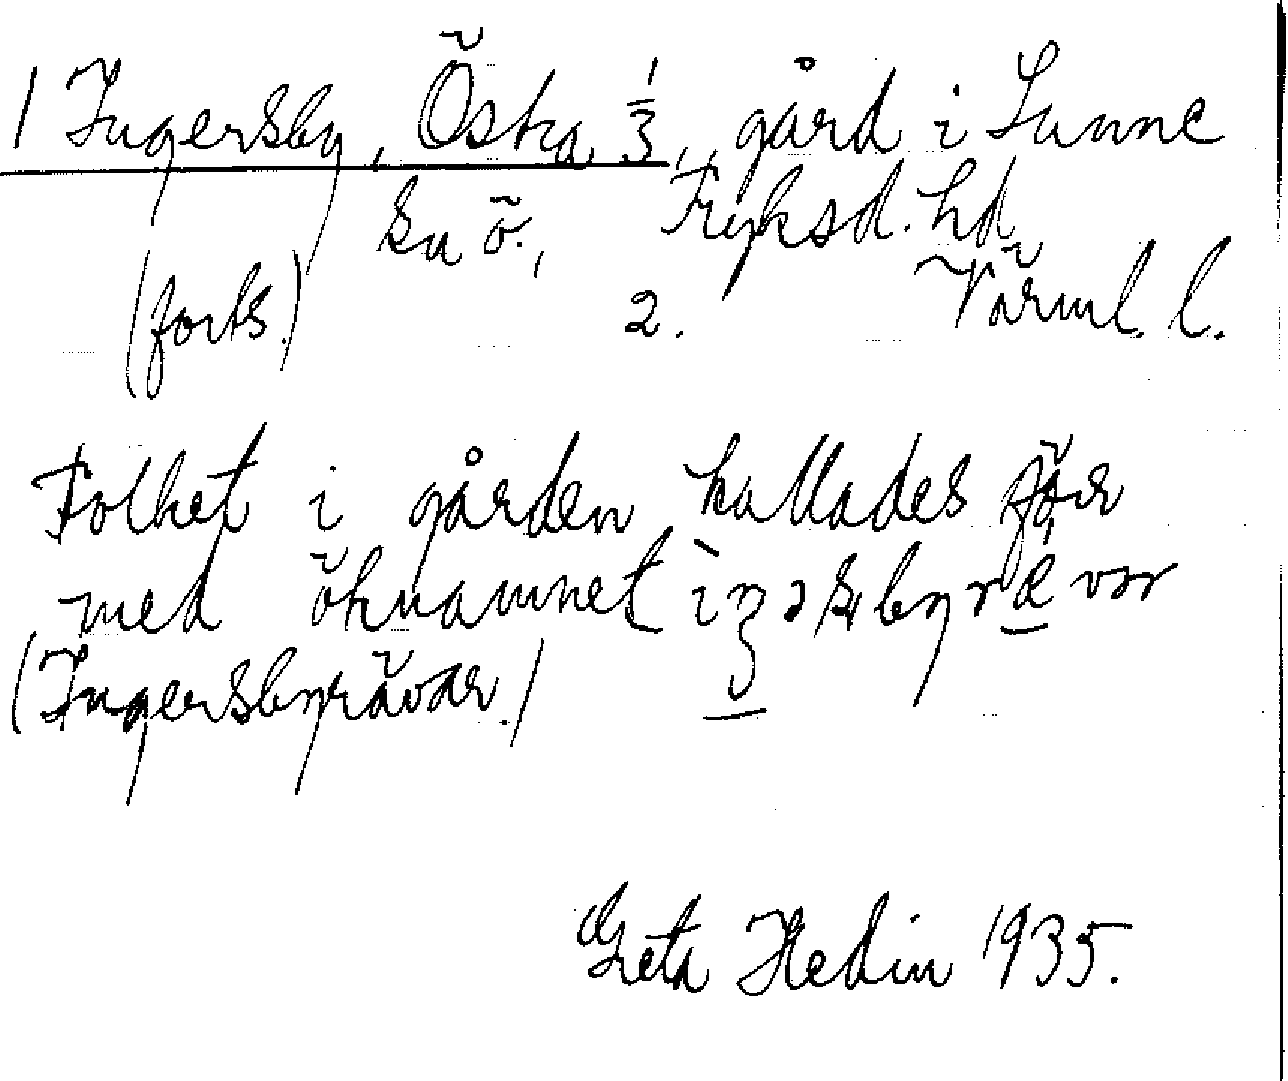 1 Ingersby, Östra 1/3, gård i Sunne
sn ö., Fryksd. hd
(forts.) 2. Värml. l.
Folket i gården kallades för
med öknamnet
(Ingersbyrävar.)
Greta Hedin 1935.